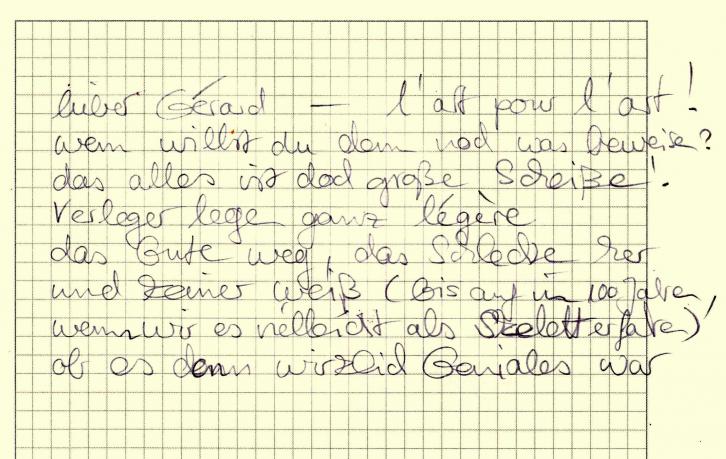 lieber Gérard — l'art pour l'art!
wem willst du denn noch was beweisen?
das alles ist doch große Scheiße!
Verleger legen ganz légère
das Gute weg, das Schlechte her
und keiner weiß (bis auf in 100 Jahren,
wenn wir es vielleicht als Skelett erfahren)
ob es denn wirklich Geniales war